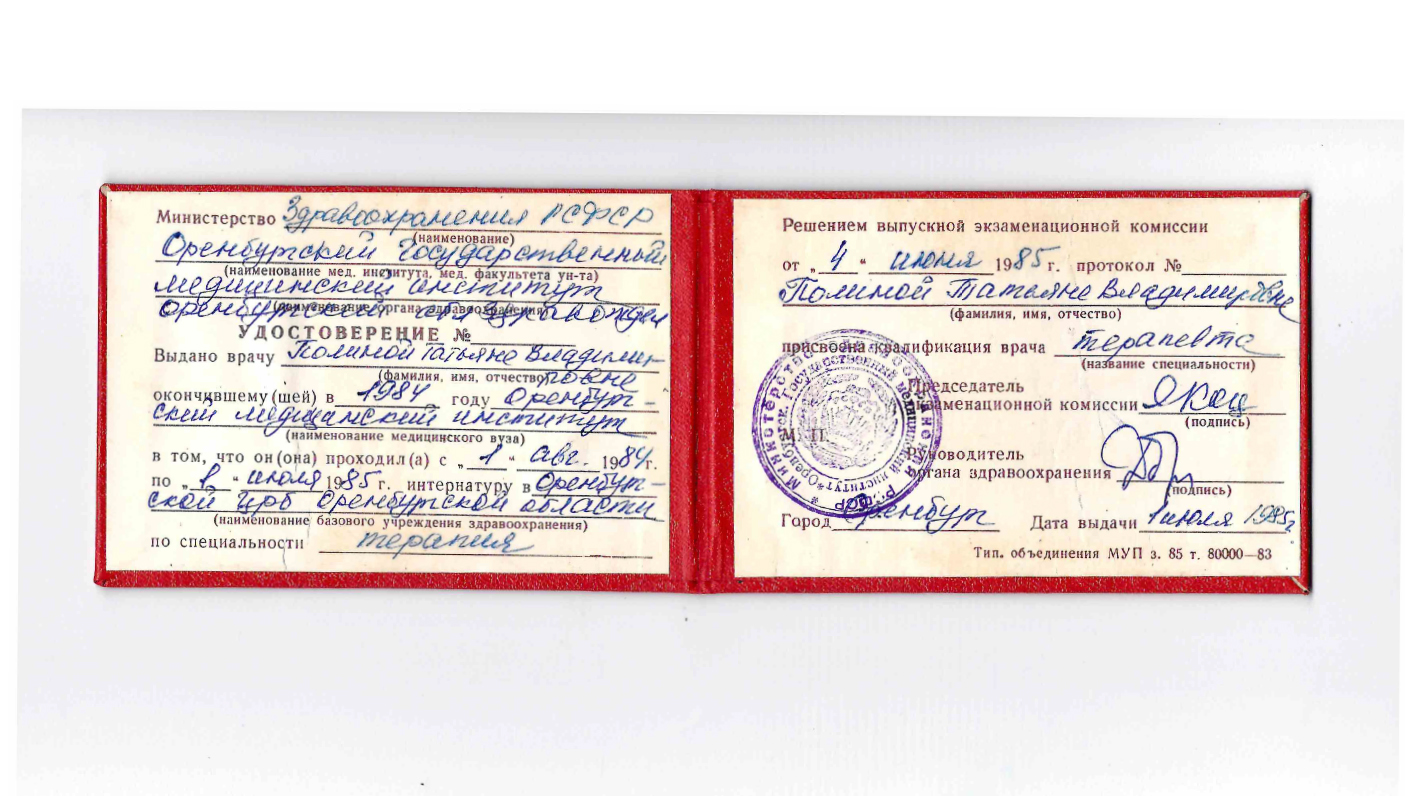 Министерство Здравоохранения РСФСР
(наименование)
Оренбургский Государственный
(наименование мед. института, мед. факультета ун-та)
медицинский институт
Оренбургский
(наименование органа здравоохранения)
УДОСТОВЕРЕНИЕ №
Выдано врачу Полиной Татьяне Владимировне
(фамилия, имя, отчество)
окончившему (шей) в 1984 году Оренбург-
ский медицинский институт
(наименование медицинского вуза)
в том, что он (она) проходил (а) с „ 1 “ авг. 1984 г.
по „ 1 “ июля 1985 г. интернатуру в Оренбург-
ской црб Оренбургской области
(наименование базового учреждения здравоохранения)
по специальности терапия
Решением выпускной экзаменационной комиссии
от „ 4 “ июня 1985 г. протокол №
Полиной Татьяне Владимировне
(фамилия, имя, отчество)
присвоена квалификация врача терапевта
(название специальности)
Председатель
экзаменационной комиссии
(подпись)
М. П.
Руководитель
органа здравоохранения
(подпись)
Город Оренбург Дата выдачи 1 июля 1985 г.
Тип. объединения МУП з. 85 т. 80000—83